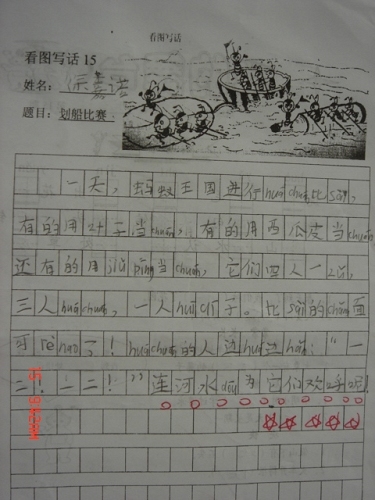 看图写话
看图写话 15
姓名:
题目:划船比赛
一天,蚂蚁王国进行huá chuán比sài,
有的用叶子当chuán,有的用西瓜皮当chuán
还有的用jiǔ píng当chuán,它们四人一zǔ,
三人huá chuán,一人huī qí子。比sài的chǎng面
可rè nao了!huá chuán的人边huá边hǎn:“一
二!一二!”连河水dōu为它们欢呼呢!